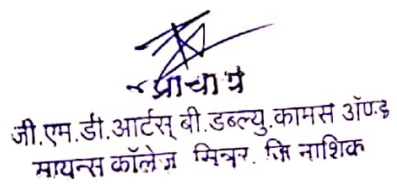 प्राचार्य
जी.एम.डी.आर्टस् बी.डब्ल्यु.कामर्स ॲण्ड
सायन्स कॉलेज सिन्नर. जि नाशिक